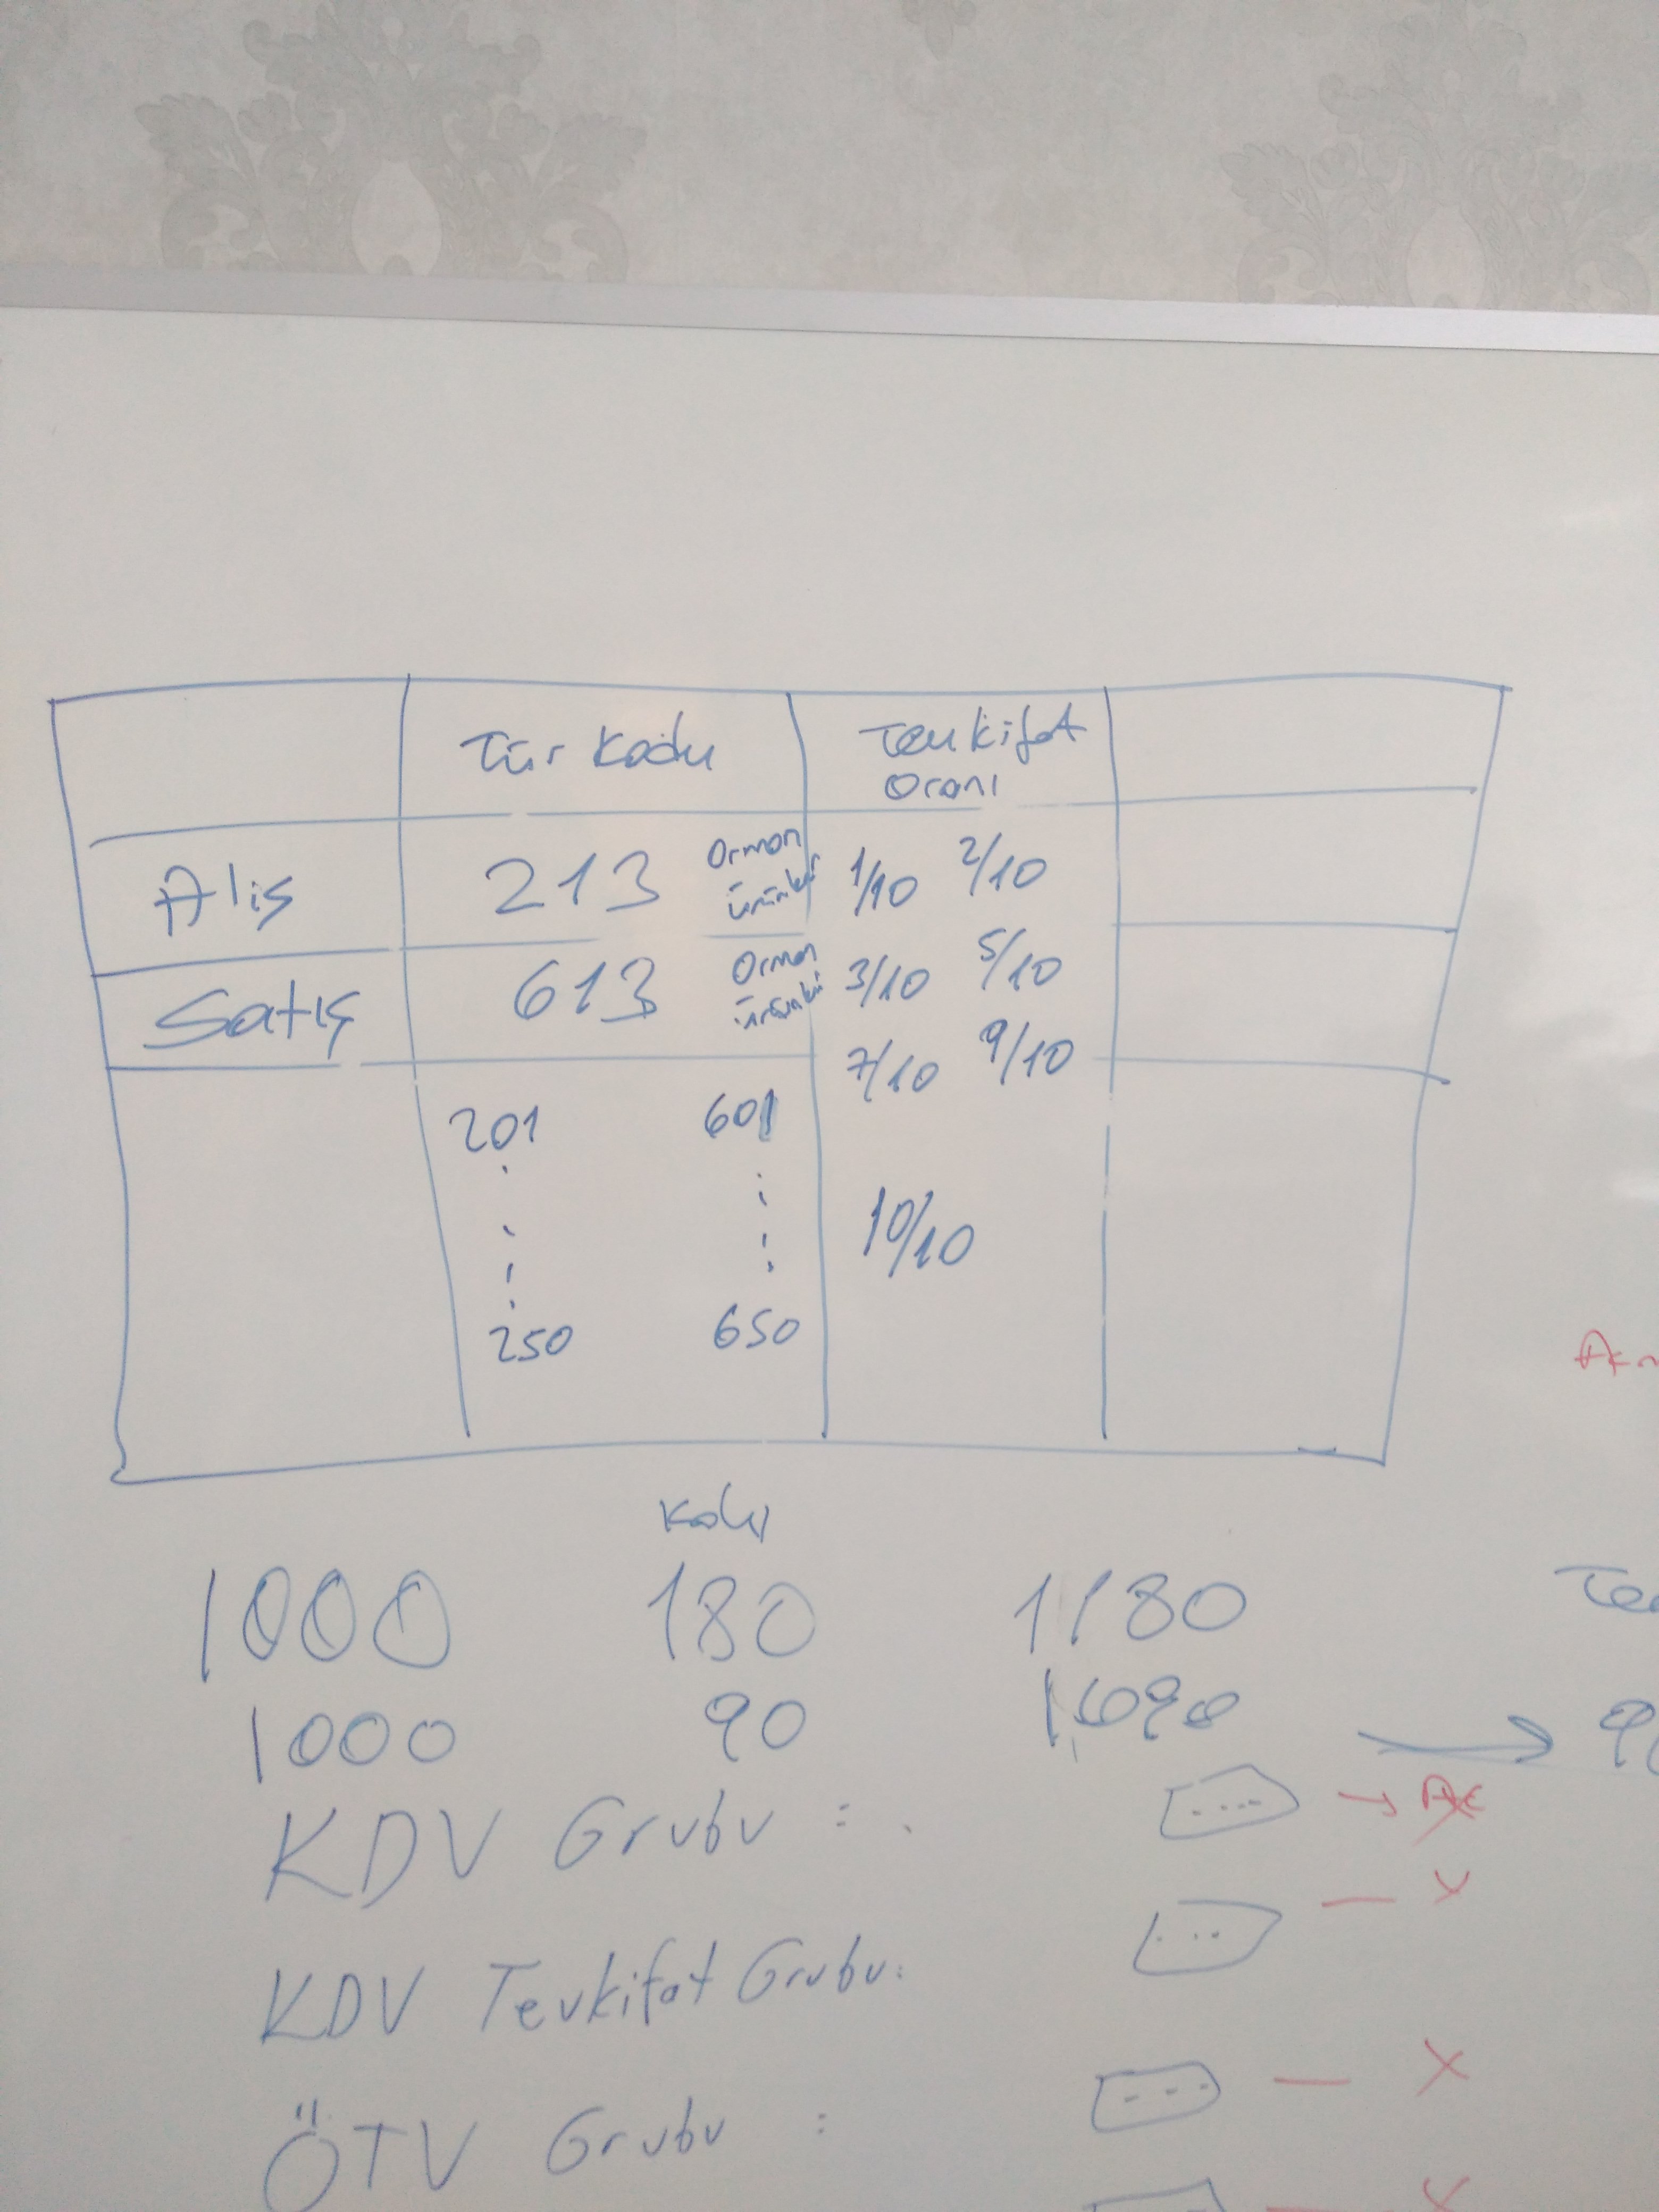 Tür Kodu Tevkifat
Oranı
Alış 213 Orman
ürünleri 1/10 2/10
Satış 613 Orman
ürünleri 3/10 5/10
7/10 9/10
201 601
10/10
250 650
1000 180 1180
1000 90 1090
KDV Grubu :
KDV Tevkifat Grubu:
ÖTV Grubu :